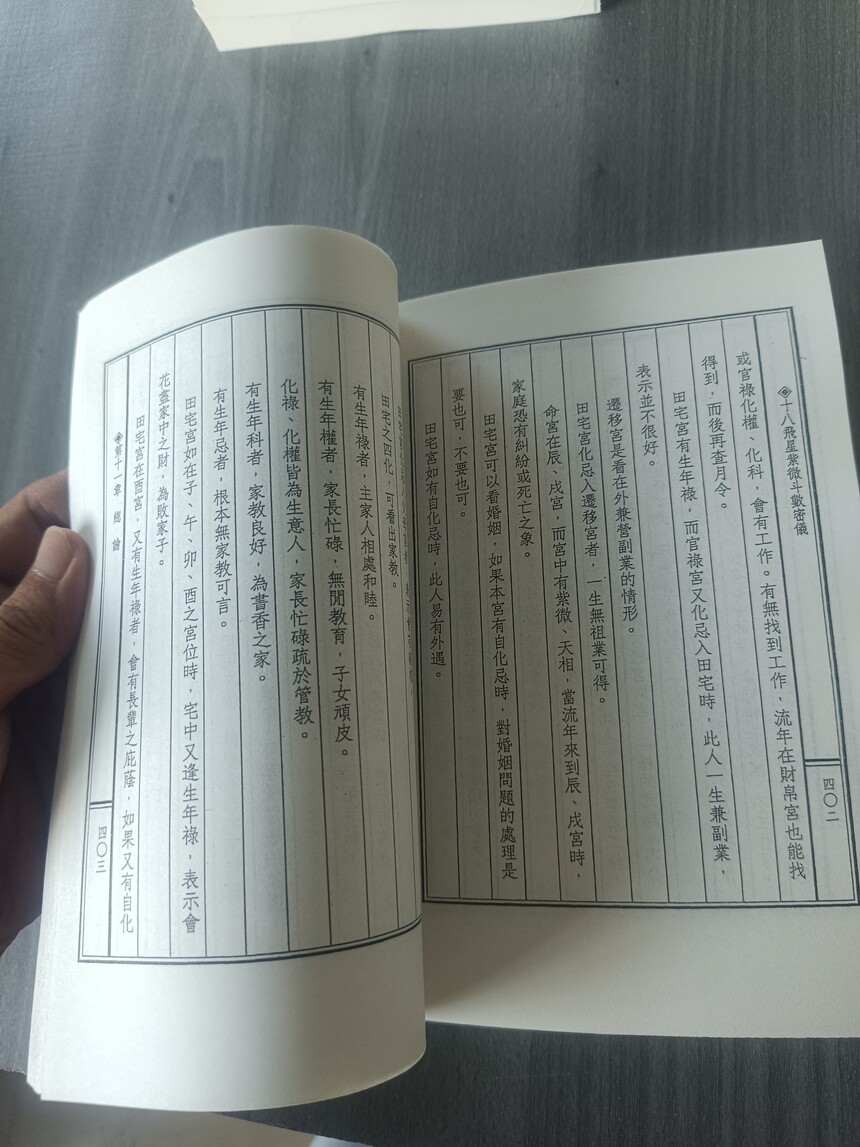 十八飛星紫微斗數密儀
四〇二
或官祿化權、化科，會有工作。有無找到工作，流年在財帛宮也能找
得到，而後再查月令。
田宅宮有生年祿，而官祿宮又化忌入田宅時，此人一生兼副業，
表示並不很好。
遷移宮是看在外兼營副業的情形。
田宅宮化忌入遷移宮者，一生無祖業可得。
命宮在辰、戌宮，而宮中有紫微、天相，當流年來到辰、戌宮時，
家庭恐有糾紛或死亡之象。
田宅宮可以看婚姻，如果本宮有自化忌時，對婚姻問題的處理是
要也可，不要也可。
田宅宮如有自化忌時，此人易有外遇。
田宅之四化，可看出家教。
有生年祿者，主家人相處和睦。
有生年權者，家長忙碌，無閒教育，子女頑皮。
化祿、化權皆為生意人，家長忙碌疏於管教。
有生年科者，家教良好，為書香之家。
有生年忌者，根本無家教可言。
田宅宮如在子、午、卯、酉之宮位時，宅中又逢生年祿，表示會
花盡家中之財，為敗家子。
田宅宮在酉宮，又有生年祿者，會有長輩之庇蔭，如果又有自化
第十一章 總論
四〇三